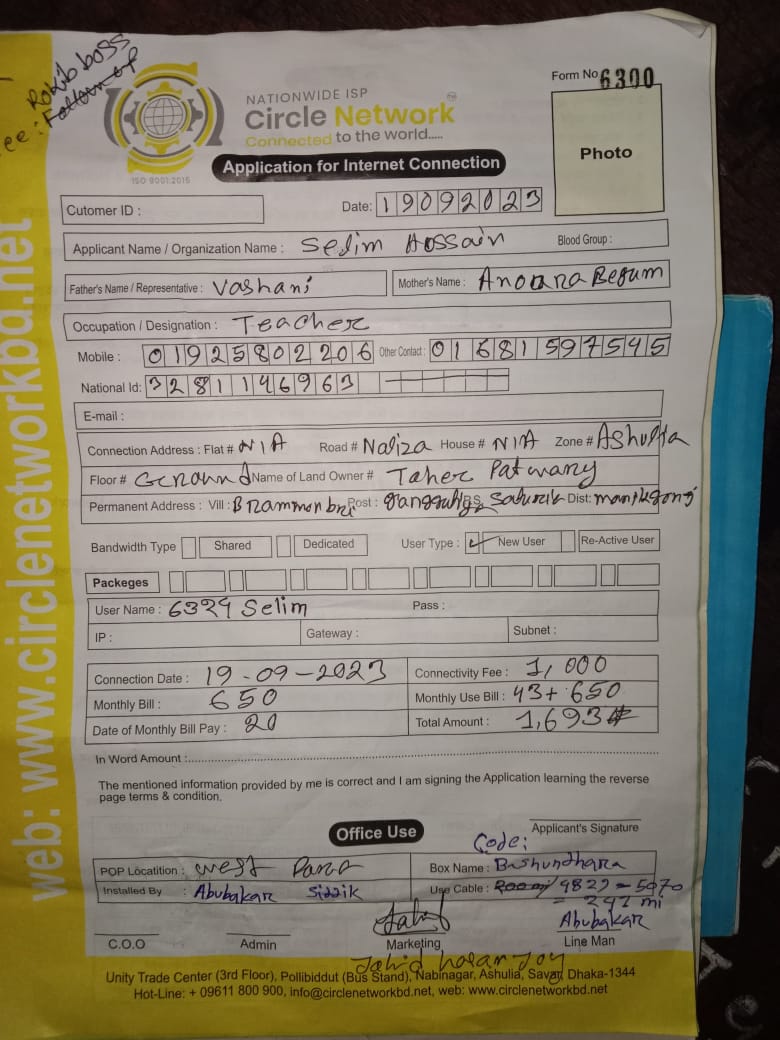 Rokib boss
ee: Follow up
NATIONWIDE ISP
Circle Network
Connected to the world.....
ISO 9001:2015
Form No. 6300
Photo
Application for Internet Connection
Cutomer ID :
Date: 19092023
Applicant Name / Organization Name : Selim Hossain Blood Group :
Father's Name / Representative : Vashani Mother's Name : Anoara Begum
Occupation / Designation : Teacher
Mobile : 01925802206 Other Contact : 01681597545
National Id: 3281146963
E-mail :
Connection Address : Flat # N/A Road # Naliza House # N/A Zone # Ashulia
Floor # Ground Name of Land Owner # Taher Patwary
Permanent Address : Vill : Brammon bri Post : PS Saturia Dist: manikgonj
Bandwidth Type Shared Dedicated User Type : ✓ New User Re-Active User
Packeges
User Name : 6329 Selim Pass :
IP : Gateway : Subnet :
Connection Date : 19-09-2023 Connectivity Fee : 1,000
Monthly Bill : 650 Monthly Use Bill : 43+650
Date of Monthly Bill Pay : 20 Total Amount : 1,693
In Word Amount :
The mentioned information provided by me is correct and I am signing the Application learning the reverse
page terms & condition.
Applicant's Signature
Office Use
Code:
POP Locatition : west Para Box Name : Bashundhara
Installed By : Abubakar Siddik Use Cable : 9829-5070
= 241 mi
Abubakar
C.O.O Admin Marketing Line Man
Jahid hasan Joy
Unity Trade Center (3rd Floor), Pollibiddut (Bus Stand), Nabinagar, Ashulia, Savar, Dhaka-1344
Hot-Line: + 09611 800 900, info@circlenetworkbd.net, web: www.circlenetworkbd.net
web: www.circlenetworkbd.net